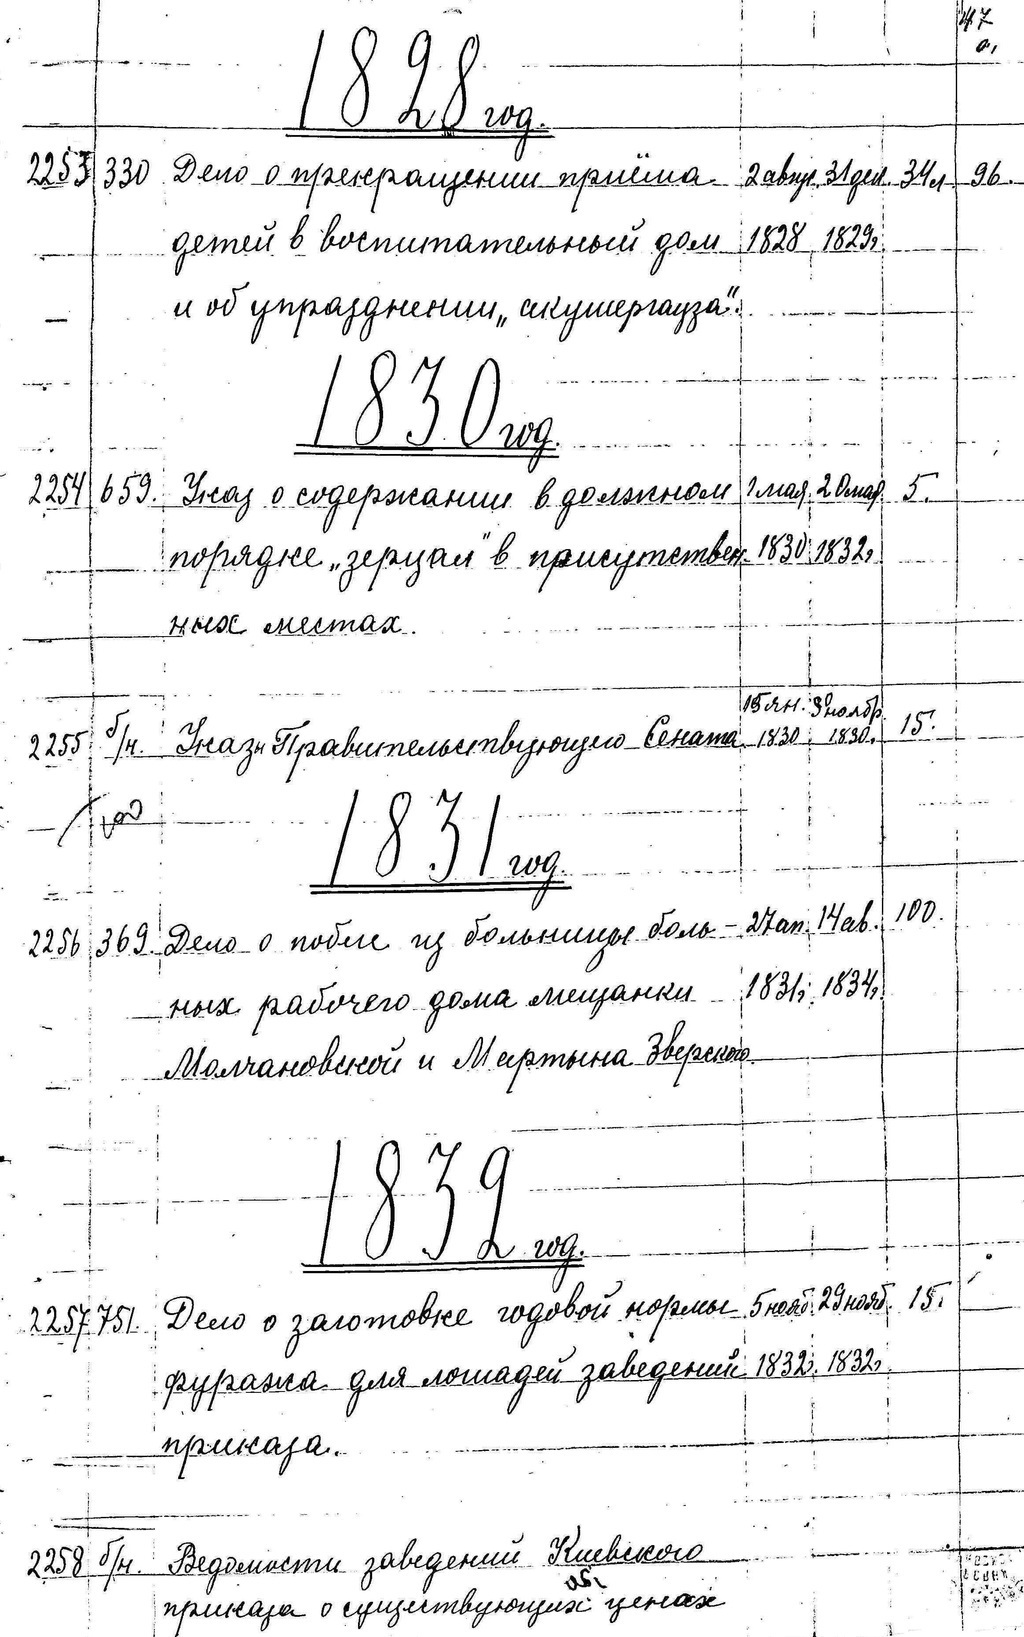 47
1828 год.
2253 330 Дело о прекращении приёма 2 авгус. 31 дек. 34 л. 96.
детей в воспитательный дом 1828 1829г.
и об упразднении „акушергауза".
1830 год.
2254 659. Указ о содержании в должном 1 мая 20 мар. 5.
порядке „зерцал" в присутствен- 1830 1832г.
ных местах.
15 ян. 3 ноябр.
2255 б/н. Указы Правительствующего Сената 1830 1830. 15.
1831 год.
2256 369. Дело о побеге из больницы боль- 27 ап. 14 ав. 100.
ных рабочего дома мещанки 1831г. 1834г.
Молчановской и Мартына Зверского
1832 год.
2257 751. Дело о заготовке годовой нормы 5 нояб. 29 нояб. 15.
фуража для лошадей заведений 1832г. 1832г.
приказа.
2258 б/н. Ведомости заведений Киевского
приказа о существующих ценах